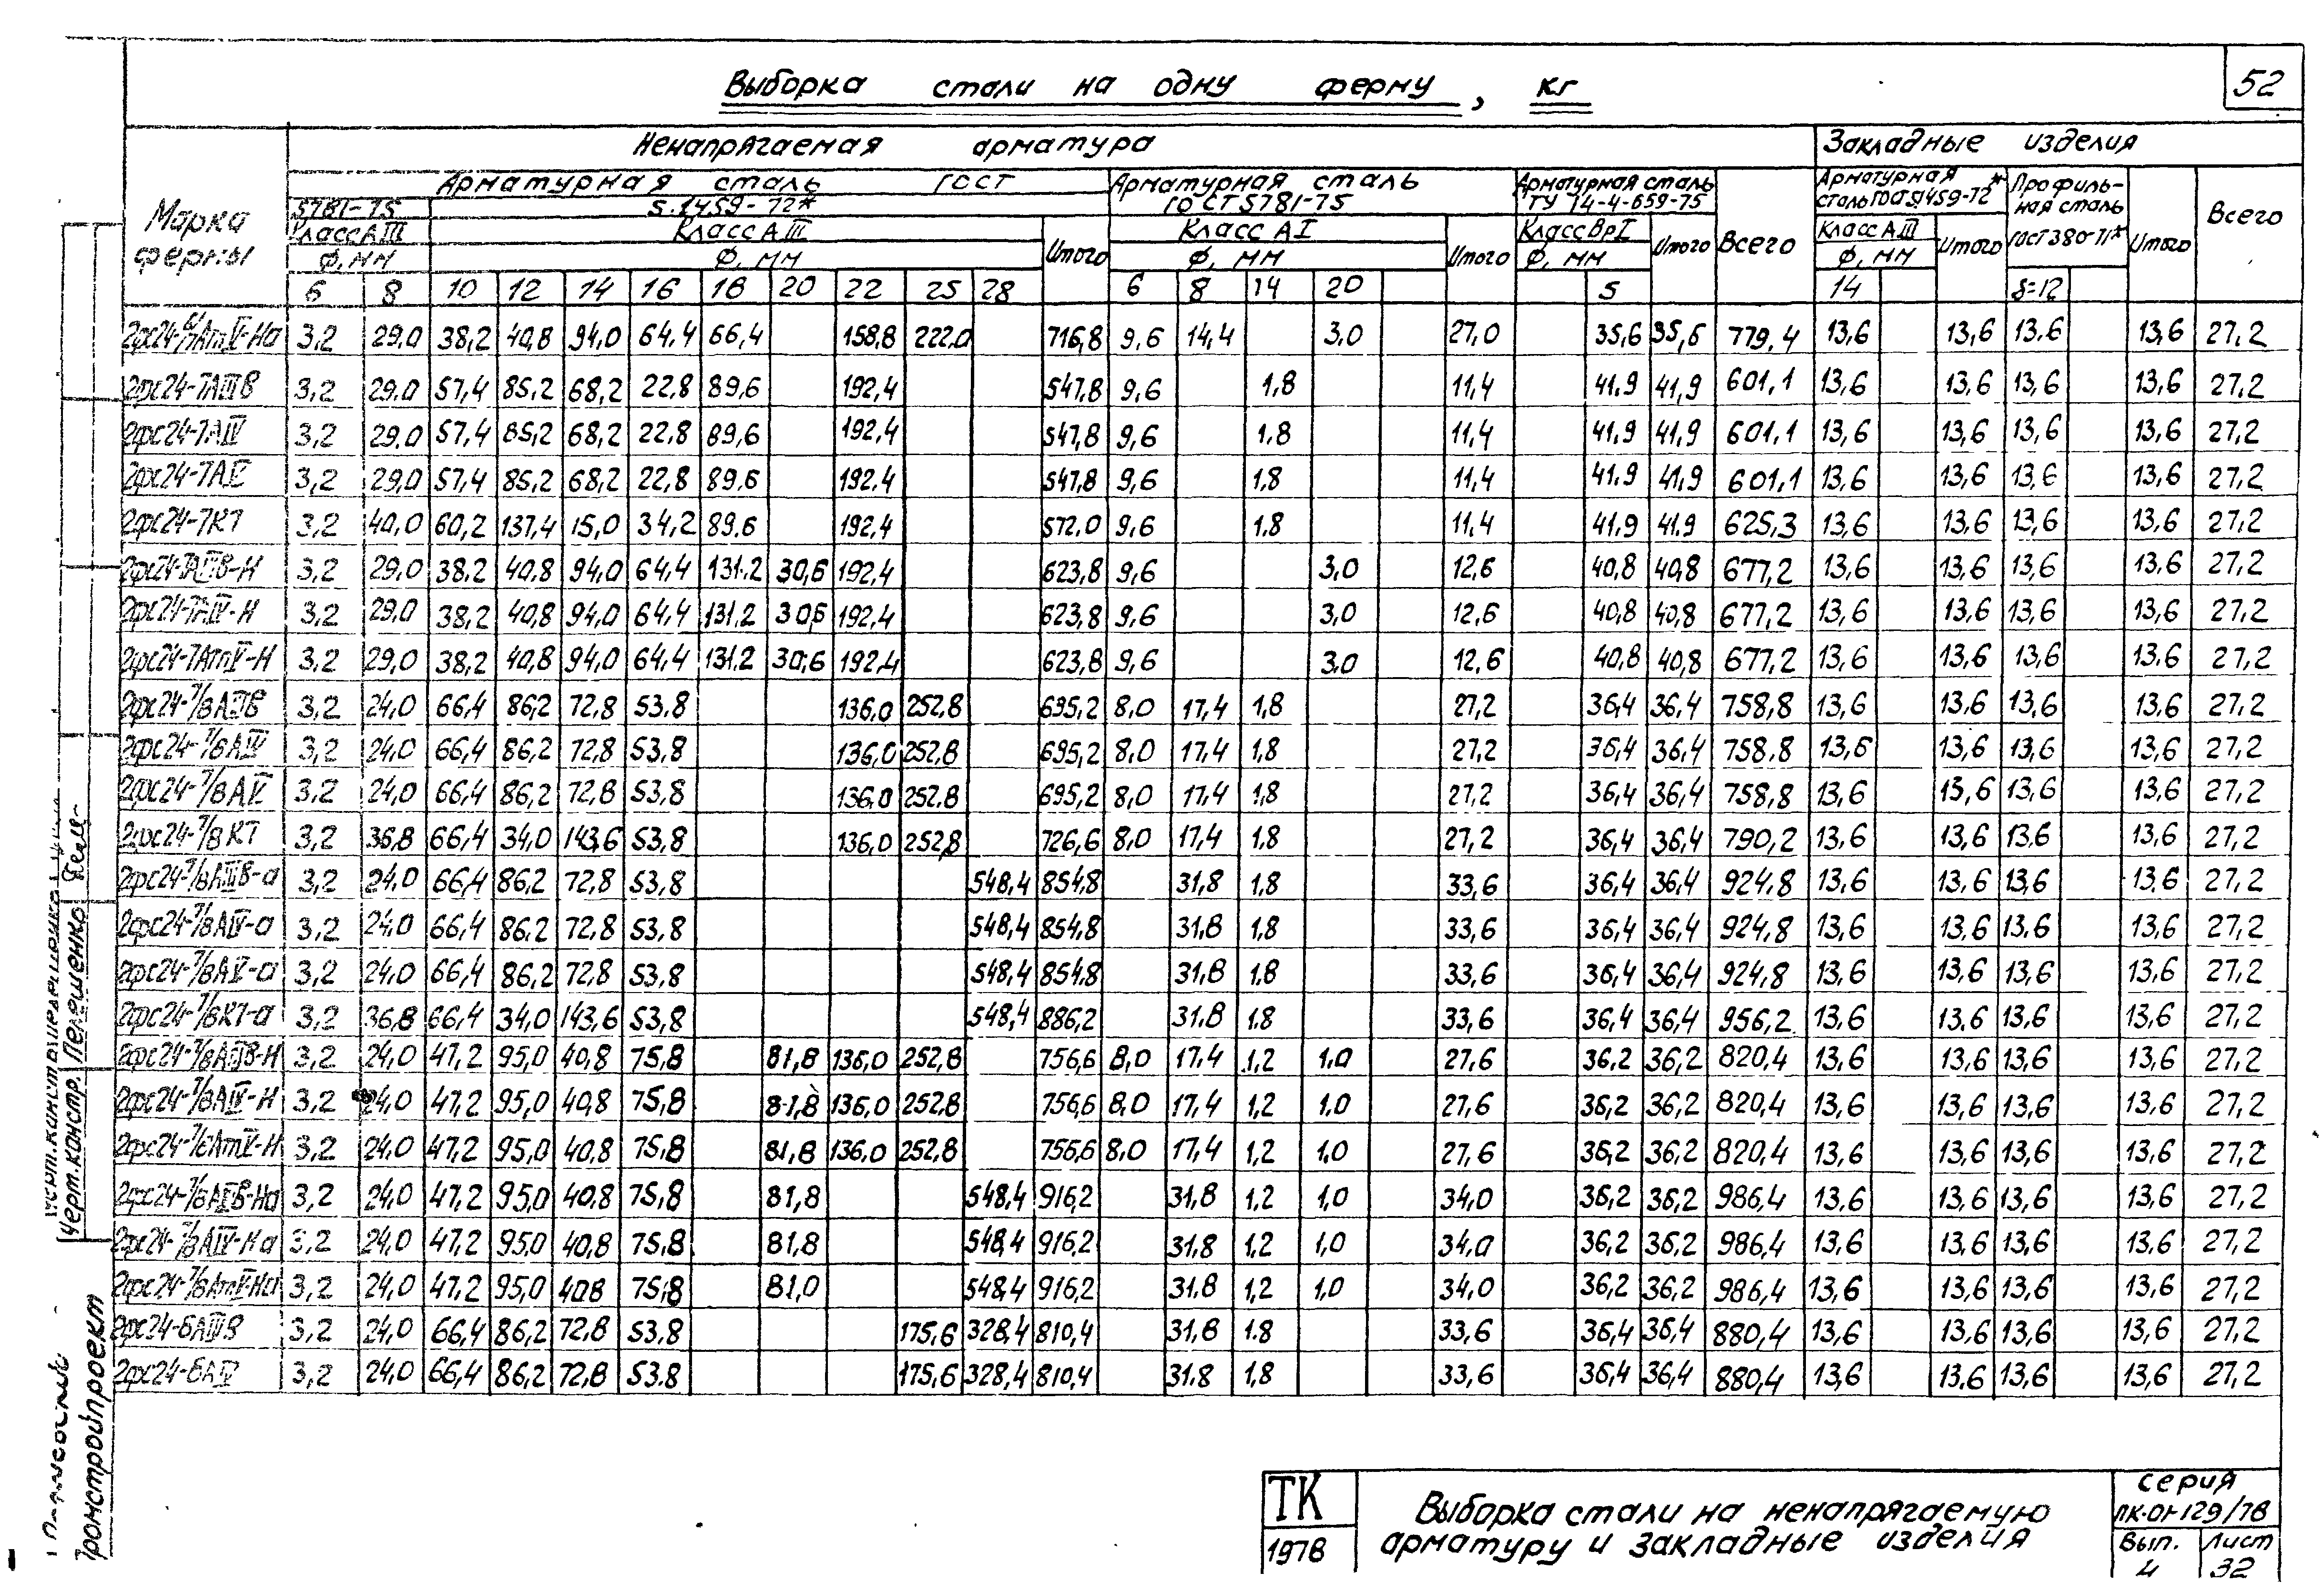 52
Выборка стали на одну ферму, кг
Марка фермы
Ненапрягаемая арматура
Закладные изделия
Арматурная сталь ГОСТ
Арматурная сталь ГОСТ 5781-75
Арматурная сталь ТУ 14-4-659-75
Всего
Арматурная сталь ГОСТ 5.1459-72*
Профильная сталь ГОСТ 380-71*
Всего
5781-75
5.1459-72*
Класс АIII
Класс АIII
Итого
Класс АI
Итого
Класс ВрI
Итого
Класс АIII
Итого
Итого
Ф, мм
Ф, мм
Ф, мм
Ф, мм
Ф, мм
6 8 10 12 14 16 18 20 22 25 28 6 8 14 20 5 14 δ=12
3,2 29,0 38,2 40,8 94,0 64,4 66,4 158,8 222,0 716,8 9,6 14,4 3,0 27,0 35,6 35,6 779,4 13,6 13,6 13,6 13,6 27,2
2фс24-7АIIIв 3,2 29,0 57,4 85,2 68,2 22,8 89,6 192,4 547,8 9,6 1,8 11,4 41,9 41,9 601,1 13,6 13,6 13,6 13,6 27,2
2фс24-7АIV 3,2 29,0 57,4 85,2 68,2 22,8 89,6 192,4 547,8 9,6 1,8 11,4 41,9 41,9 601,1 13,6 13,6 13,6 13,6 27,2
2фс24-7АV 3,2 29,0 57,4 85,2 68,2 22,8 89,6 192,4 547,8 9,6 1,8 11,4 41,9 41,9 601,1 13,6 13,6 13,6 13,6 27,2
2фс24-7К7 3,2 40,0 60,2 137,4 15,0 34,2 89,6 192,4 572,0 9,6 1,8 11,4 41,9 41,9 625,3 13,6 13,6 13,6 13,6 27,2
2фс24-7АIIIв-Н 3,2 29,0 38,2 40,8 94,0 64,4 131,2 30,6 192,4 623,8 9,6 3,0 12,6 40,8 40,8 677,2 13,6 13,6 13,6 13,6 27,2
2фс24-7АIV-Н 3,2 29,0 38,2 40,8 94,0 64,4 131,2 30,6 192,4 623,8 9,6 3,0 12,6 40,8 40,8 677,2 13,6 13,6 13,6 13,6 27,2
2фс24-7АтV-Н 3,2 29,0 38,2 40,8 94,0 64,4 131,2 30,6 192,4 623,8 9,6 3,0 12,6 40,8 40,8 677,2 13,6 13,6 13,6 13,6 27,2
2фс24-7/8АIIIв 3,2 24,0 66,4 86,2 72,8 53,8 136,0 252,8 695,2 8,0 17,4 1,8 27,2 36,4 36,4 758,8 13,6 13,6 13,6 13,6 27,2
2фс24-7/8АIV 3,2 24,0 66,4 86,2 72,8 53,8 136,0 252,8 695,2 8,0 17,4 1,8 27,2 36,4 36,4 758,8 13,6 13,6 13,6 13,6 27,2
2фс24-7/8АV 3,2 24,0 66,4 86,2 72,8 53,8 136,0 252,8 695,2 8,0 17,4 1,8 27,2 36,4 36,4 758,8 13,6 13,6 13,6 13,6 27,2
2фс24-7/8К7 3,2 36,8 66,4 34,0 143,6 53,8 136,0 252,8 726,6 8,0 17,4 1,8 27,2 36,4 36,4 790,2 13,6 13,6 13,6 13,6 27,2
2фс24-7/8АIIIв-а 3,2 24,0 66,4 86,2 72,8 53,8 548,4 854,8 31,8 1,8 33,6 36,4 36,4 924,8 13,6 13,6 13,6 13,6 27,2
2фс24-7/8АIV-а 3,2 24,0 66,4 86,2 72,8 53,8 548,4 854,8 31,8 1,8 33,6 36,4 36,4 924,8 13,6 13,6 13,6 13,6 27,2
2фс24-7/8АV-а 3,2 24,0 66,4 86,2 72,8 53,8 548,4 854,8 31,8 1,8 33,6 36,4 36,4 924,8 13,6 13,6 13,6 13,6 27,2
2фс24-7/8К7-а 3,2 36,8 66,4 34,0 143,6 53,8 548,4 886,2 31,8 1,8 33,6 36,4 36,4 956,2 13,6 13,6 13,6 13,6 27,2
2фс24-7/8АIIIв-Н 3,2 24,0 47,2 95,0 40,8 75,8 81,8 136,0 252,8 756,6 8,0 17,4 1,2 1,0 27,6 36,2 36,2 820,4 13,6 13,6 13,6 13,6 27,2
2фс24-7/8АIV-Н 3,2 24,0 47,2 95,0 40,8 75,8 81,8 136,0 252,8 756,6 8,0 17,4 1,2 1,0 27,6 36,2 36,2 820,4 13,6 13,6 13,6 13,6 27,2
2фс24-7/8АтV-Н 3,2 24,0 47,2 95,0 40,8 75,8 81,8 136,0 252,8 756,6 8,0 17,4 1,2 1,0 27,6 36,2 36,2 820,4 13,6 13,6 13,6 13,6 27,2
2фс24-7/8АIIIв-На 3,2 24,0 47,2 95,0 40,8 75,8 81,8 548,4 916,2 31,8 1,2 1,0 34,0 36,2 36,2 986,4 13,6 13,6 13,6 13,6 27,2
2фс24-7/8АIV-На 3,2 24,0 47,2 95,0 40,8 75,8 81,8 548,4 916,2 31,8 1,2 1,0 34,0 36,2 36,2 986,4 13,6 13,6 13,6 13,6 27,2
2фс24-7/8АтV-На 3,2 24,0 47,2 95,0 40,8 75,8 81,0 548,4 916,2 31,8 1,2 1,0 34,0 36,2 36,2 986,4 13,6 13,6 13,6 13,6 27,2
2фс24-8АIIIв 3,2 24,0 66,4 86,2 72,8 53,8 175,6 328,4 810,4 31,8 1.8 33,6 36,4 36,4 880,4 13,6 13,6 13,6 13,6 27,2
2фс24-8АIV 3,2 24,0 66,4 86,2 72,8 53.8 175,6 328,4 810,4 31,8 1,8 33,6 36,4 36,4 880,4 13,6 13,6 13,6 13,6 27,2
Черт.констр. Пелешенко
Промстройпроект
ТК
1978
Выборка стали на ненапрягаемую
арматуру и закладные изделия
серия
ПК-01-129/78
Вып. 4
Лист 32